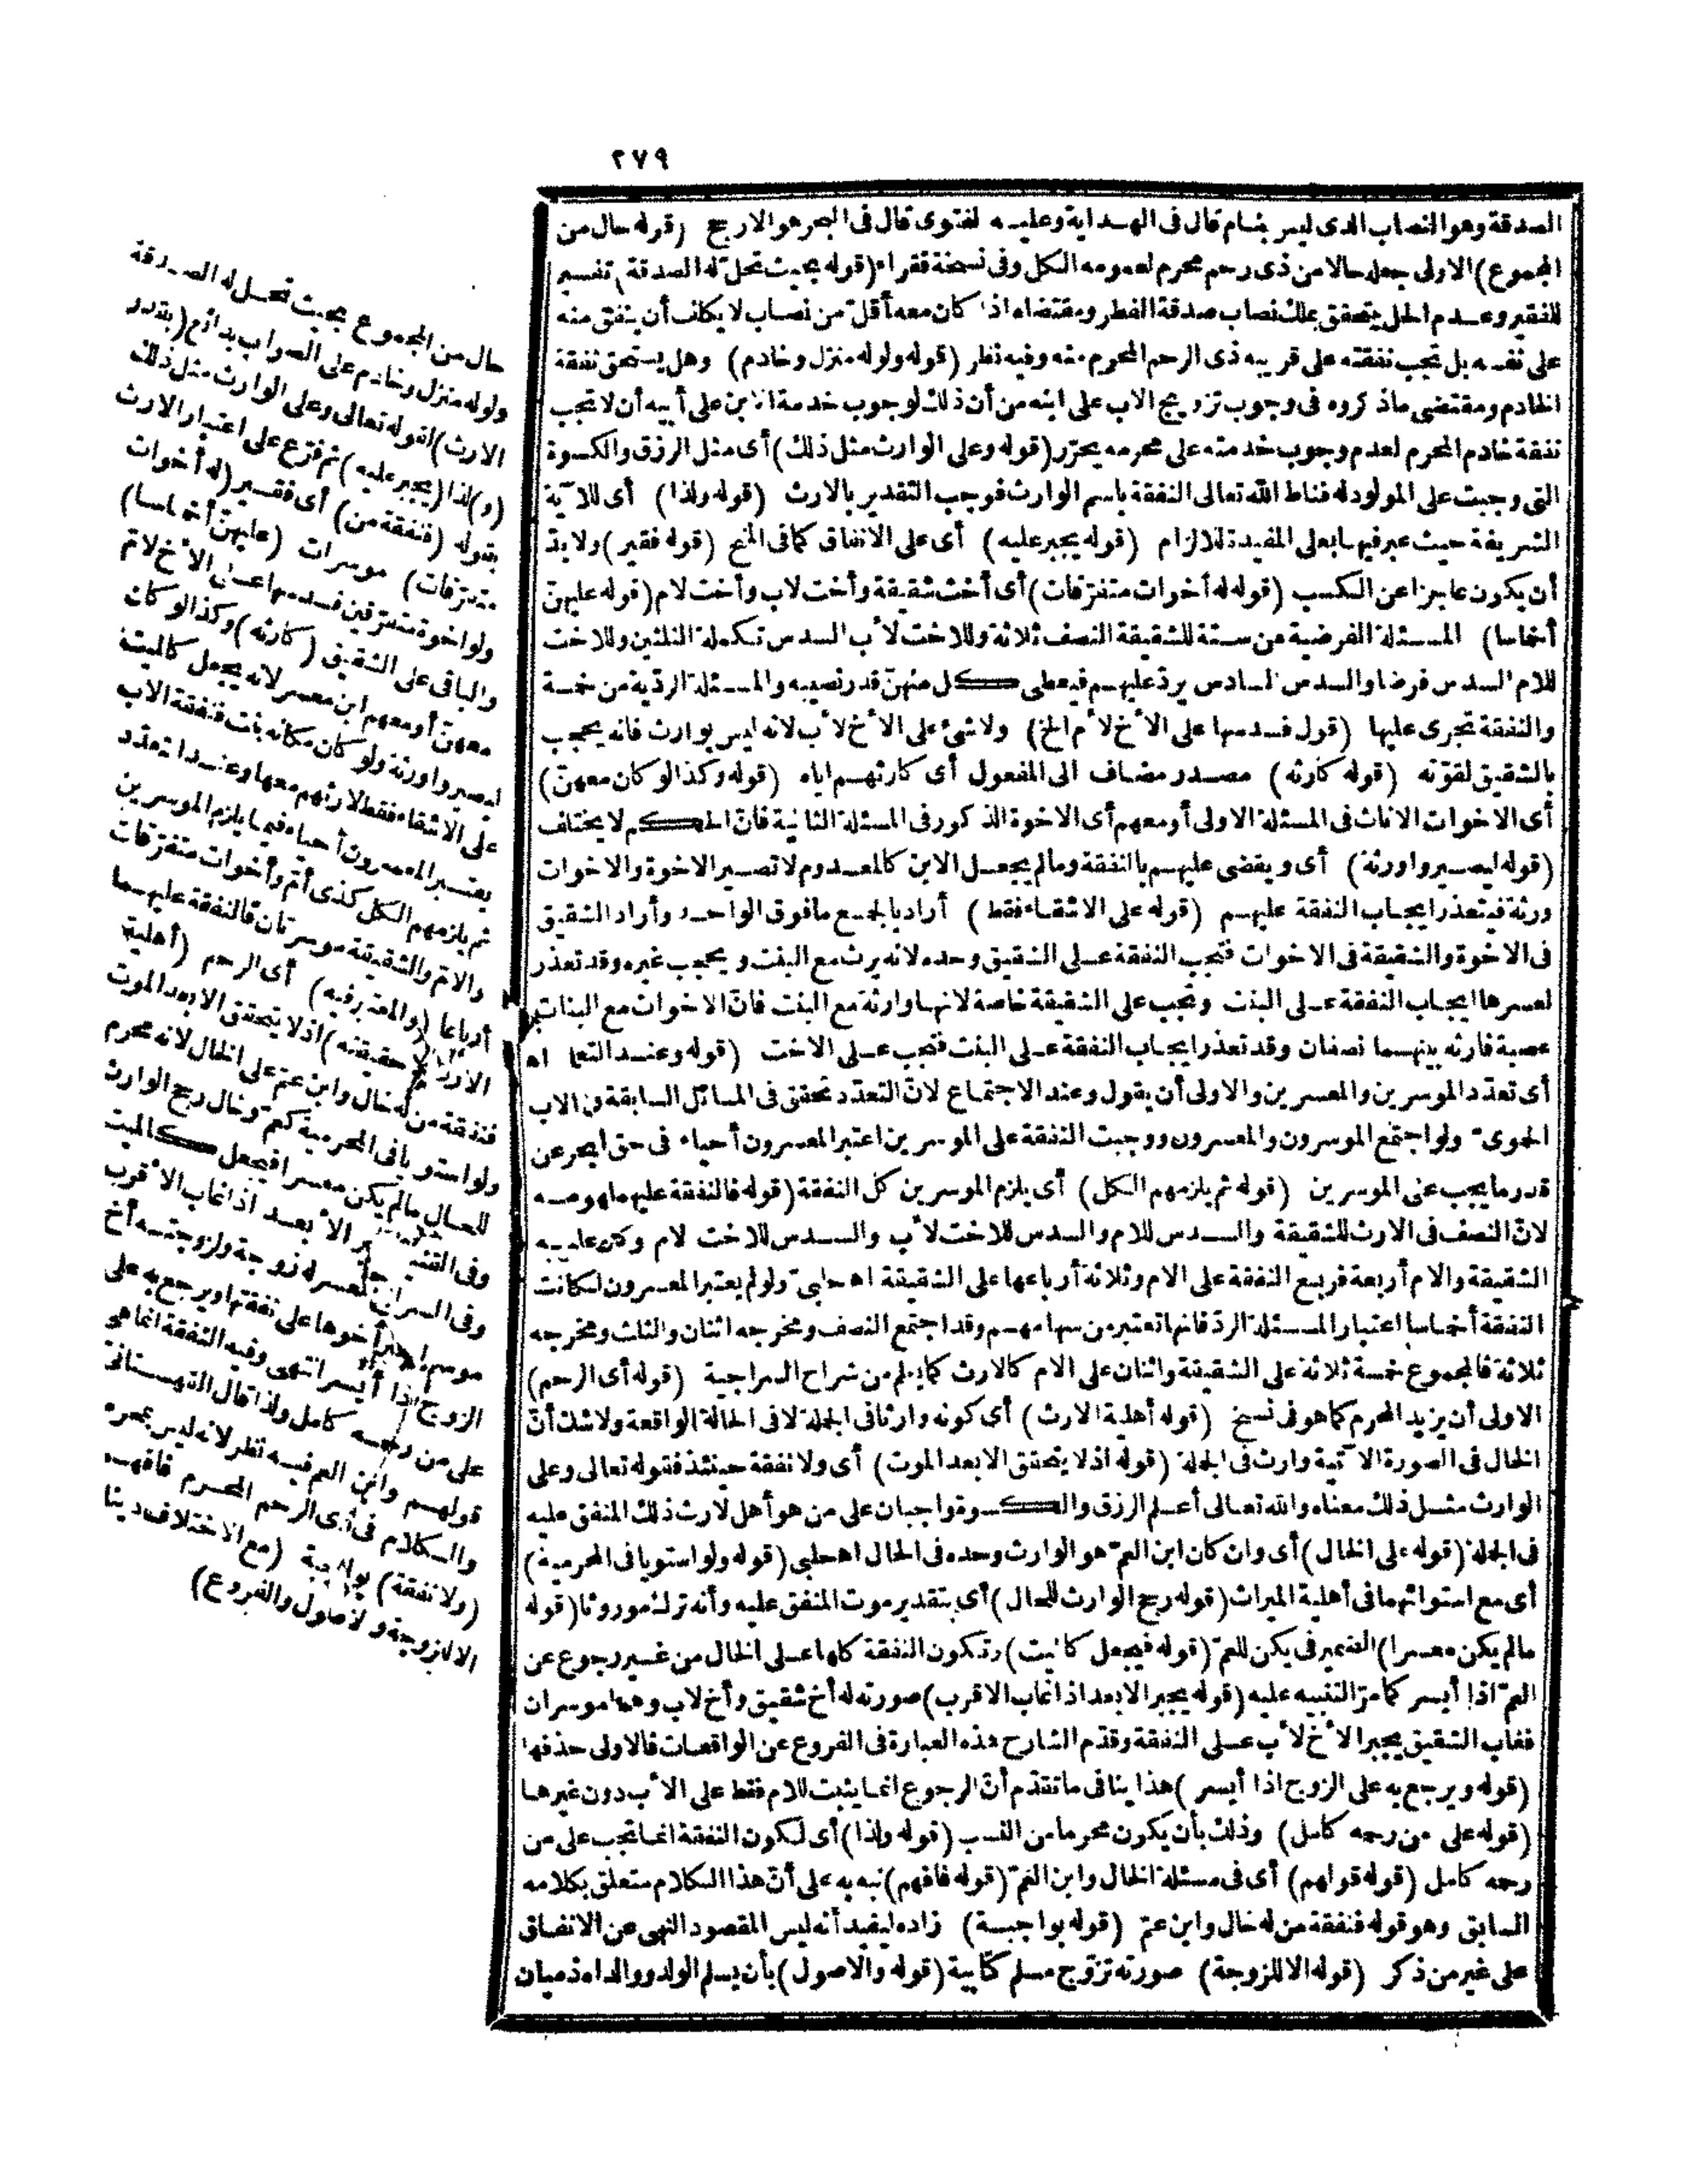 ٢٧٩
الصدقة وهو النصاب الذى ليس بنام قال فى الهداية وعليه الفتوى قال فى البحر هو الارجح (قوله حال من
المجموع) الاولى جعله حالا من ذى رحم محرم لعمومه الكل وفى نسخة فقراء (قوله بحيث تحل له الصدقة) تفسير
للفقير وعدم الحل يتحقق بملك نصاب صدقة الفطر ومقتضاه اذا كان معه أقل من نصاب لا يكلف أن ينفق منه
على نفسه بل تجب نفقته على قريبه ذى الرحم المحرم منه وفيه نظر (قوله ولو له منزل وخادم) وهل يستحق نفقة
الخادم ومقتضى ماذكروه فى وجوب تزويج الاب على ابنه من أن ذلك لوجوب خدمة الابن على أبيه أن لا تجب
نفقة خادم المحرم لعدم وجوب خدمته على محرمه يحرّر (قوله وعلى الوارث مثل ذلك) أى مثل الرزق والكسوة
التى وجبت على المولود له فناط الله تعالى النفقة باسم الوارث فوجب التقدير بالارث (قوله ولذا) أى للآية
الشريفة حيث عبر فيها بعلى المفيدة للالزام (قوله يجبر عليه) أى على الانفاق كما فى المنح (قوله فقير) ولا بدّ
أن يكون عاجزا عن الكسب (قوله له أخوات متفرّقات) أى أخت شقيقة وأخت لاب وأخت لام (قوله عليهنّ
أخماسا) المسئلة الفرضية من ستة للشقيقة النصف ثلاثة وللاخت لأب السدس تكملة الثلثين وللاخت
للام السدس فرضا والسدس السادس يردّ عليهم فيعطى كل منهنّ قدر نصيبه والمسئلة الردّية من خمسة
والنفقة تجرى عليها (قول فسدسها على الأخ لأم الخ) ولا شئ على الأخ لأب لانه ليس بوارث فانه يحجب
بالشقيق لقوّته (قوله كارثه) مصدر مضاف الى المفعول أى كارثهم اياه (قوله وكذا لو كان معهنّ)
أى الاخوات الاناث فى المسئلة الاولى أو معهم أى الاخوة الذكور فى المسئلة الثانية فانّ الحكم لا يختلف
(قوله ليصيروا ورثة) أى ويقضى عليهم بالنفقة وما لم يجعل الابن كالمعدوم لا تصير الاخوة والاخوات
ورثة فيتعذر ايجاب النفقة عليهم (قوله على الاشقاء فقط) أراد بالجمع ما فوق الواحد وأراد الشقيق
فى الاخوة والشقيقة فى الاخوات فتجب النفقة على الشقيق وحده لانه يرث مع البنت ويحجب غيره وقد تعذر
لعسرها ايجاب النفقة على البنت وتجب على الشقيقة خاصة لانها وارثة مع البنت فانّ الاخوات مع البنات
عصبة فارثه بينهما نصفان وقد تعذر ايجاب النفقة على البنت فتجب على الاخت (قوله وعند
أى تعدّد الموسرين والمعسرين والاولى أن يقول وعند الاجتماع لانّ التعدّد تحقق فى المسائل السابقة الاب
الحموى ولو اجتمع الموسرون والمعسرون ووجبت النفقة على الموسرين اعتبر المعسرون أحياء فى حق عن
قدر ما يجب على الموسرين (قوله ثم يلزمهم الكل) أى يلزم الموسرين كل النفقة (قوله فالنفقة عليهما
لانّ النصف فى الارث للشقيقة والسدس للام والسدس للاخت لأب والسدس للاخت لام
الشقيقة والام أربعة فربع النفقة على الام وثلاثة أرباعها على الشقيقة اه حلبى ولو لم يعتبر المعسرون لكانت
النفقة أخماسا اعتبارا لمسئلة الردّ فانها تعتبر من سهامهم وقد اجتمع النصف ومخرجه اثنان والثلث ومخرجه
ثلاثة فالمجموع خمسة ثلاثة على الشقيقة واثنان على الام كالارث كما يعلم من شراح السراجية (قوله أى الرحم)
الاولى أن يزيد المحرم كما هو فى نسخ (قوله أهلية الارث) أى كونه وارثا فى الجملة لا فى الحالة الواقعة ولا شك أنّ
الخال فى الصورة الآتية وارث فى الجملة (قوله اذ لا يتحقق الا بعد الموت) أى ولا نفقة حينئذ فقوله تعالى وعلى
الوارث مثل ذلك معناه والله تعالى أعلم الرزق والكسوة واجبان على من هو أهل لارث ذلك المنفق عليه
فى الجملة (قوله على الخال) أى وان كان ابن العمّ هو الوارث وحده فى الحال اه حلبى (قوله ولو استويا فى المحرمية)
أى مع استوائهما فى أهلية الميراث (قوله رجح الوارث للحال) أى بتقدير موت المنفق عليه وأنه ترك موروثا (قوله
ما لم يكن معسرا) الضمير فى يكن للعمّ (قوله فيجعل كالميت) وتكون النفقة كلها على الخال من غير رجوع عن
العمّ اذا أيسر كما مرّ التنبيه عليه (قوله يجبر الابعد اذا غاب الاقرب) صورته له أخ شقيق وأخ لاب وهما موسران
فغاب الشقيق يجبر الأخ لأب على النفقة وقدّم الشارح هذه العبارة فى الفروع عن الواقعات فالاولى حذفها
(قوله ويرجع به على الزوج اذا أيسر) هذا ينافى ما تقدّم أنّ الرجوع انما يثبت للام فقط على الأب دون غيرها
(قوله على من رحمه كامل) وذلك بأن يكون محرما من النسب (قوله ولذا) أى لكون النفقة انما تجب على من
رحمه كامل (قوله قولهم) أى فى مسئلة الخال وابن العمّ (قوله فافهم) نبه به على أنّ هذا الكلام متعلق بكلامه
السابق وهو قوله فنفقة من له خال وابن عمّ (قوله بواجبة) زاده ليفيد أنه ليس المقصود النهى عن الانفاق
على غير من ذكر (قوله الا للزوجة) صورته تزوج مسلم كتابية (قوله والاصول) بأن يسلم الولد ووالداه ذميان
حال من المجموع بحيث تحل له الصدقة
ولو له منزل وخادم على الصواب بدائع (بقدر
الارث) لقوله تعالى وعلى الوارث مثل ذلك
(و) لذا (يجبر عليه) ثم فرّع على اعتبار الارث
بقوله (فنفقة من) أى فقير (له أخوات
متفرّقات) موسرات (عليهنّ أخماسا)
ولو اخوة متفرّقين فسدسها على الأخ لامّ
والباقى على الشقيق (كارثه) وكذا لو كان
معهنّ أو معهم ابن معسر لانه يجعل كالميت
ليصيروا ورثة ولو كان مكانه بنت فنفقة الاب
على الاشقاء فقط لارثهم معها وعند تعدد
يعتبر المعسرون أحياء فيما يلزم الموسرين
ثم يلزمهم الكل كذى أمّ وأخوات متفرّقات
والامّ والشقيقة موسرتان فالنفقة عليهما
أرباعا (والمعتبر فيه) أى الرحم (أهلية
الارث لا حقيقته) اذ لا يتحقق الا بعد الموت
فنفقة من له خال وابن عمّ على الخال لانه محرم
ولو استويا فى المحرمية كعمّ وخال رجح الوارث
للحال ما لم يكن معسرا فيجعل كالميت
وفى القنية يجبر الأبعد اذا غاب الأقرب
وفى السراج معسر له زوجة ولزوجته أخ
موسر أجبر أخوها على نفقتها ويرجع به على
الزوج اذا أيسر انتهى وفيه النفقة انما هو
على من رحمه كامل ولذا قال القهستانى
قولهم وابن العم فيه نظر لانه ليس بمحرم
والكلام فى ذى الرحم المحرم فافهم
(ولا نفقة) بواجبة (مع الاختلاف دينا
الا للزوجة والاصول والفروع)